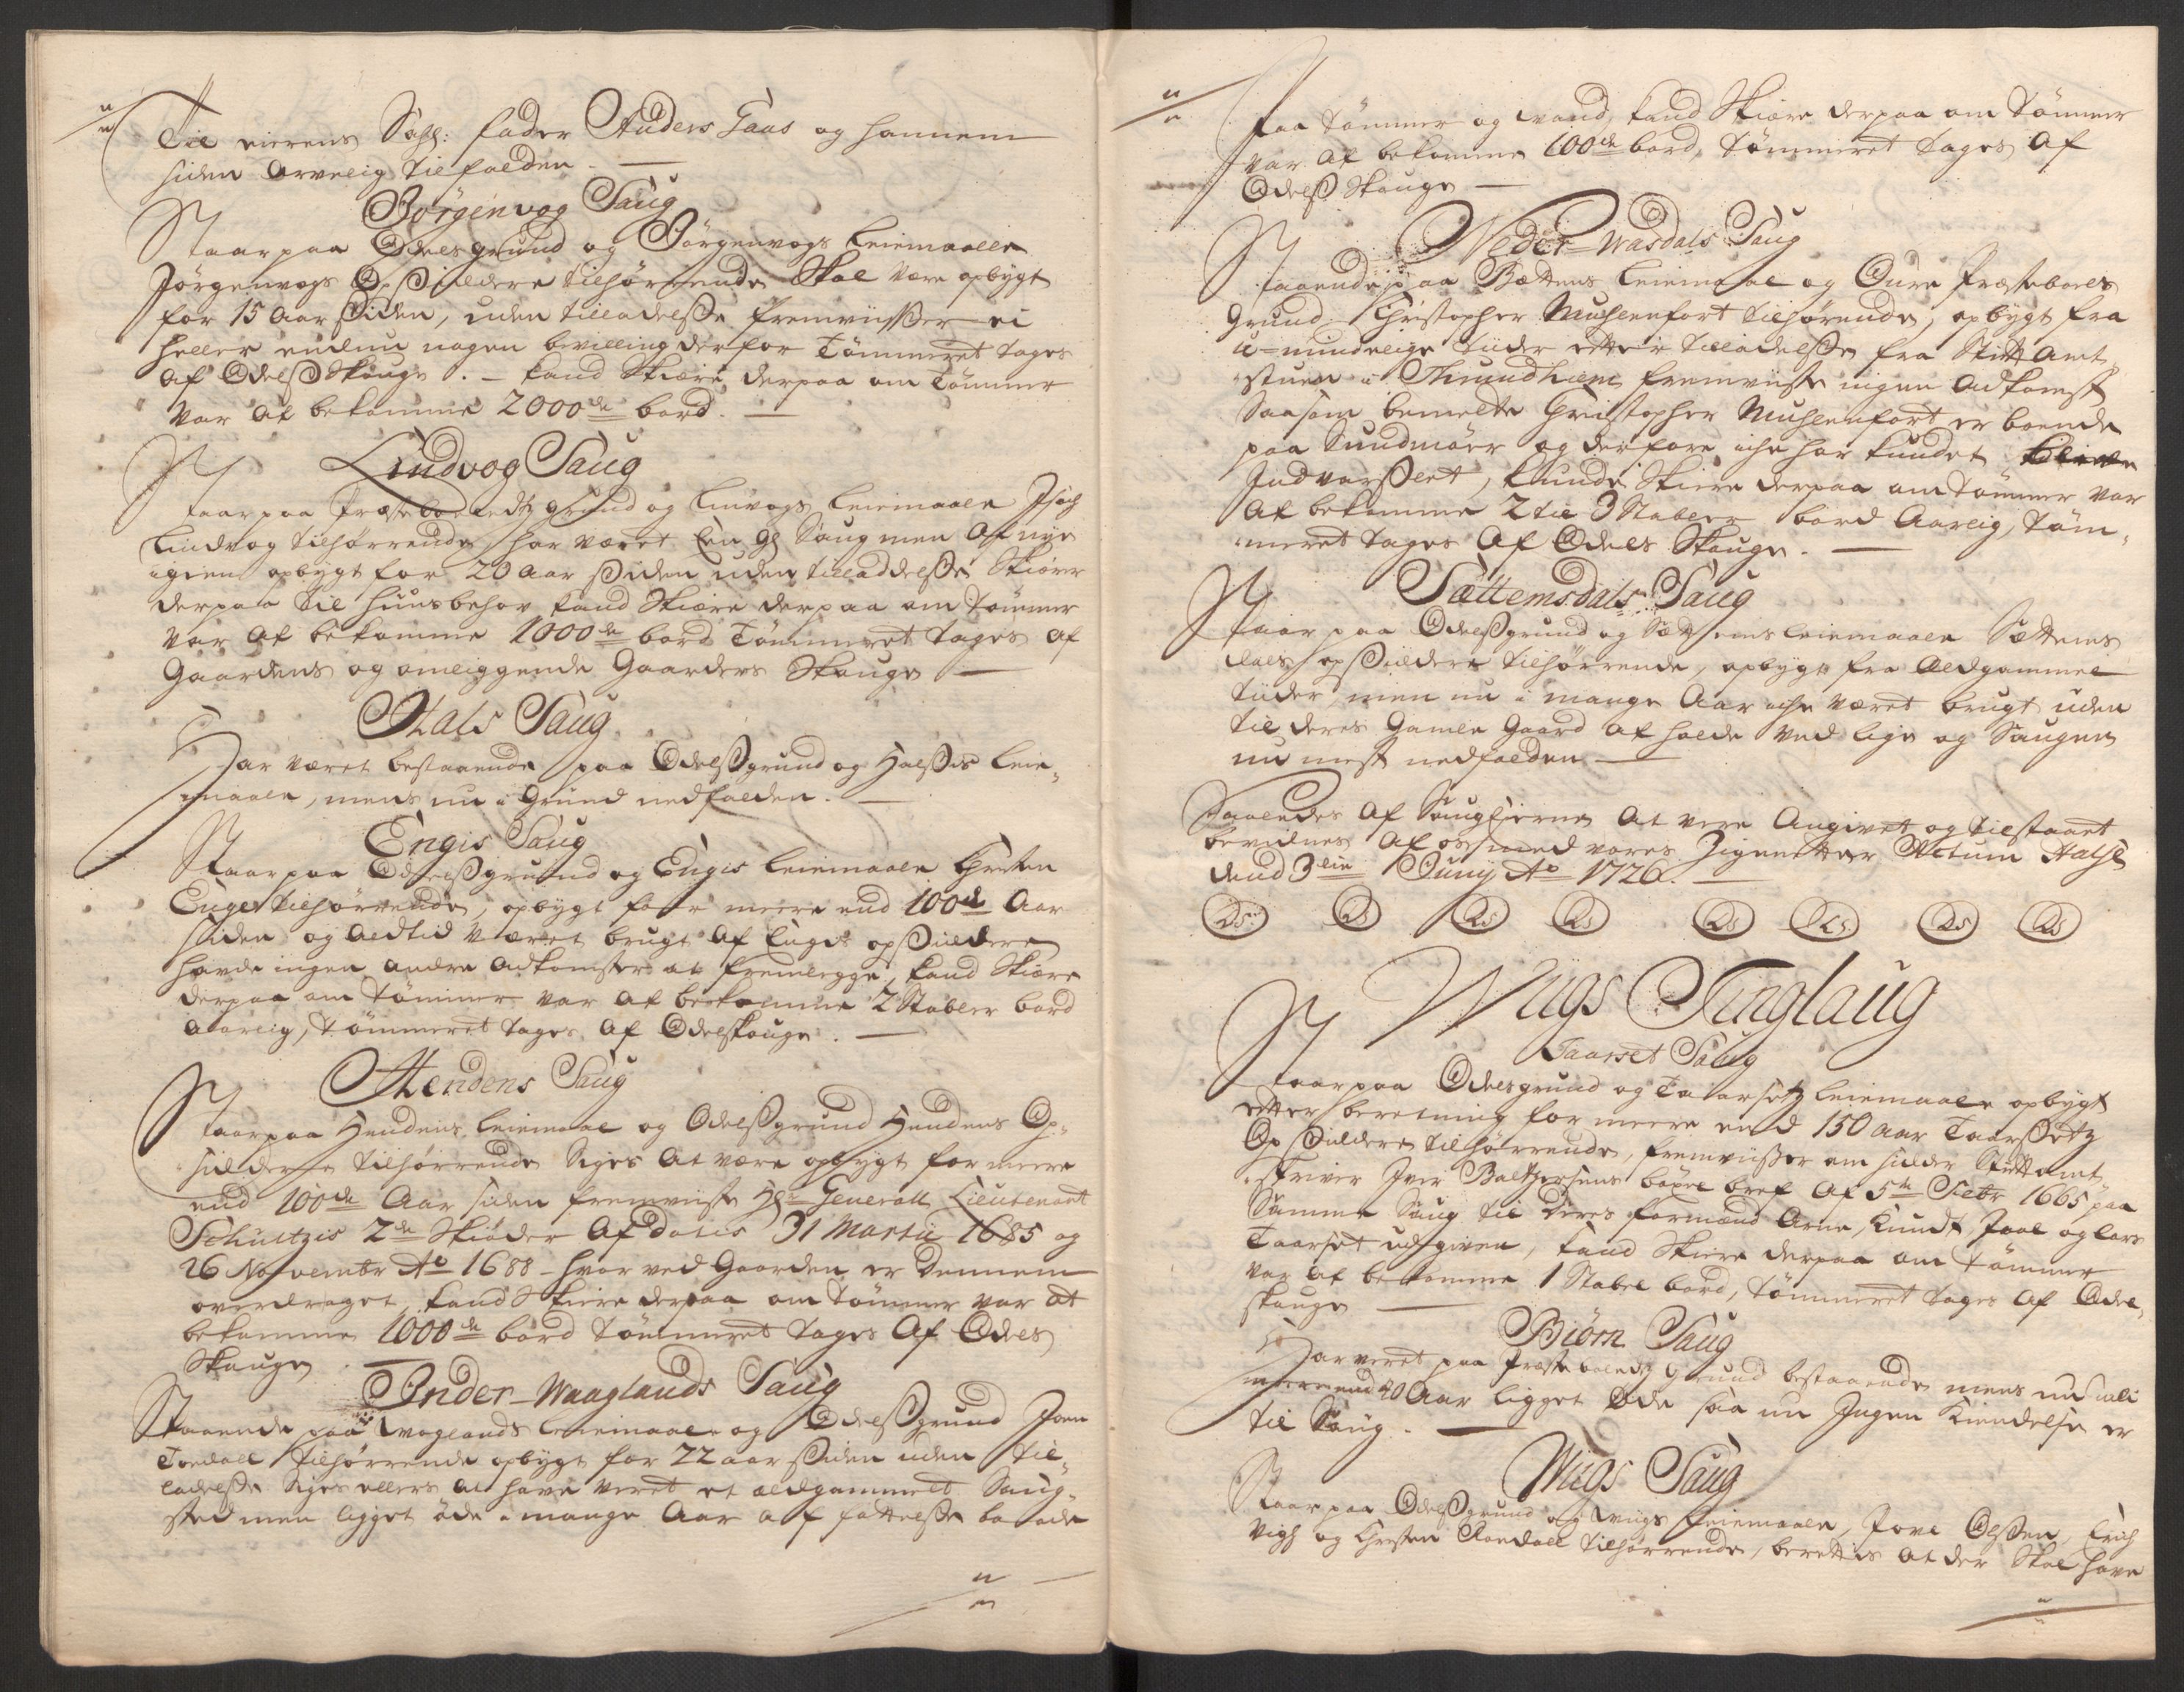 Til eierens Sahl: fader Anders Taas og hannem
siden arvelig tilfalden. —
Børgenvog Saug
Staar paa Odelsgrund og Jørgenvogs leiemaalle
Jørgenvogs Opsiddere tilhørrende Skal være opbygt
for 15 aar siden, uden tilladelse fremviisser ei
heller endnu nogen bevilling derfor Tømmeret tages
af Odels Skouge. — kand Skiære derpaa om Tømmer
var at bekomme 2000de bord. —
Lindvog Saug
Staar paa Præstebolledtz grund og Linvogs leiemaale Isach
Lindvog tilhørrende har været En gl Saug men af nye
igien opbygt for 20 aar siden uden tilladdelse Skiærer
derpaa til huusbehov kand Skiære derpaa om tømmer
var at bekomme 1000de bord Tømmeret tages af
Gaardens og omliggende Gaarders Skouge —
Hals Saug
Har været bestaaende paa Odelsgrund og Halsis leie-
maale, mens nu i Grund nedfalden. —
Engis Saug
Staar paa Odelsgrund og Engis leiemaale Christen
Enges tilhørrende, opbygt for meere end 100de Aar
siden og altid været brugt af Engis opsiddere
havde ingen andre adkomster at fremlegge, kand Skiære
derpaa om tømmer var at bekomme 2 Stabler bord
aarlig, tømmeret tages af Odelskouge. —
Hendens Saug
Staar paa Hendens leiemaal og Odelsgrund Hendens Op-
siddere tilhørrende Siges at være opbygt for meere
end 100de Aar siden fremviiste Hr Generall Lieutenant
Schultzis 2de Skiøder af datis 31 Martii 1685 og
26 Novembr Ao 1688 - hvorved Gaarden er dennem
overdraget, kand Skiere derpaa om tømmer var at
bekomme 1000de bord tømmeret tages af Odels
Skougen. —
Inder-Waaglands Saug
Staaende paa Woglands leiemaale og Odelsgrund Joen
Tordall tilhørrende opbygt for 22 aar siden uden til-
ladelse Siges ellers at have veret et ældgammelt Saug-
sted men ligget øde i mange Aar af fattelse baade
paa tømmer og vand, kand Skiære derpaa om Tømmer
var at bekomme 100de bord, Tømmeret tages af
Odels Skouge —
Neder-Wasdals Saug
Staaende paa Bættens leiemaal og Oure Præstebolls
Grund. Christopher Muhlenfort tilhørende, opbygt fra
u-mindelige tiider etter tilladelse fra Stift Amt
stuen i Thrundhiem fremviiste ingen adkomst
saasom bemelte Christopher Muhlenfort er boende
paa Sundmøer og derfore iche har kundet
Indvarslet, kunde Skiere derpaa om tømmer var
at bekomme 2 til 3 Stabler bord Aarlig, Tøm-
meret tages af Odels Skouge. —
Sættemsdals Saug
Staar paa Odelsgrund og Sættems leiemaale Sættems
dals opsiddere tilhørrende, opbygt fra Ældgammel
tiider, men nu i mange Aar iche været brugt uden
til deres Gamle Gaard at holde ved lige og Saugen
nu mest nedfalden —
Saaledes af Saugeierne at vere Angivet og tilstaaet
bevidnes af os med vores Signetter Actum Halse
dend 3die Juny Ao 1726. —
LS LS LS LS LS LS LS LS
Wiigs Tinglaug
Taarset Saug
Staar paa Odelsgrund og Taarsetz leiemaale opbygt
etter beretning for meere end 150 aar Taarsetz
Opsiddere tilhørrende, fremviisser en sidder Stiftamt
skriver Iver Baltzersens bøxel bref af 5te Febr 1665 paa
Samme Saug til deres formænd Arne, Knudt Joel og lars
Taarset udgiven, kand Skiere derpaa om tømmer
var at bekomme 1 Stabel bord, tømmeret tages af Odel-
skouge —
Biørn Saug
Har veret paa Præstebolletz Grund bestaaende mens nu i
meere end 20 Aar ligget Øde saa nu Ingen Kiendelse er
til Saug. —
Wiigs Saug
Staar paa Odelsgrund og Wiigs leiemaale, Joel Olsen, Erich
Vigh og Christen Roedall tilhørrende, berettis at der Skal have